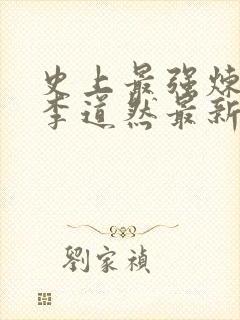 史上最强炼
李道然最新
劉家禎